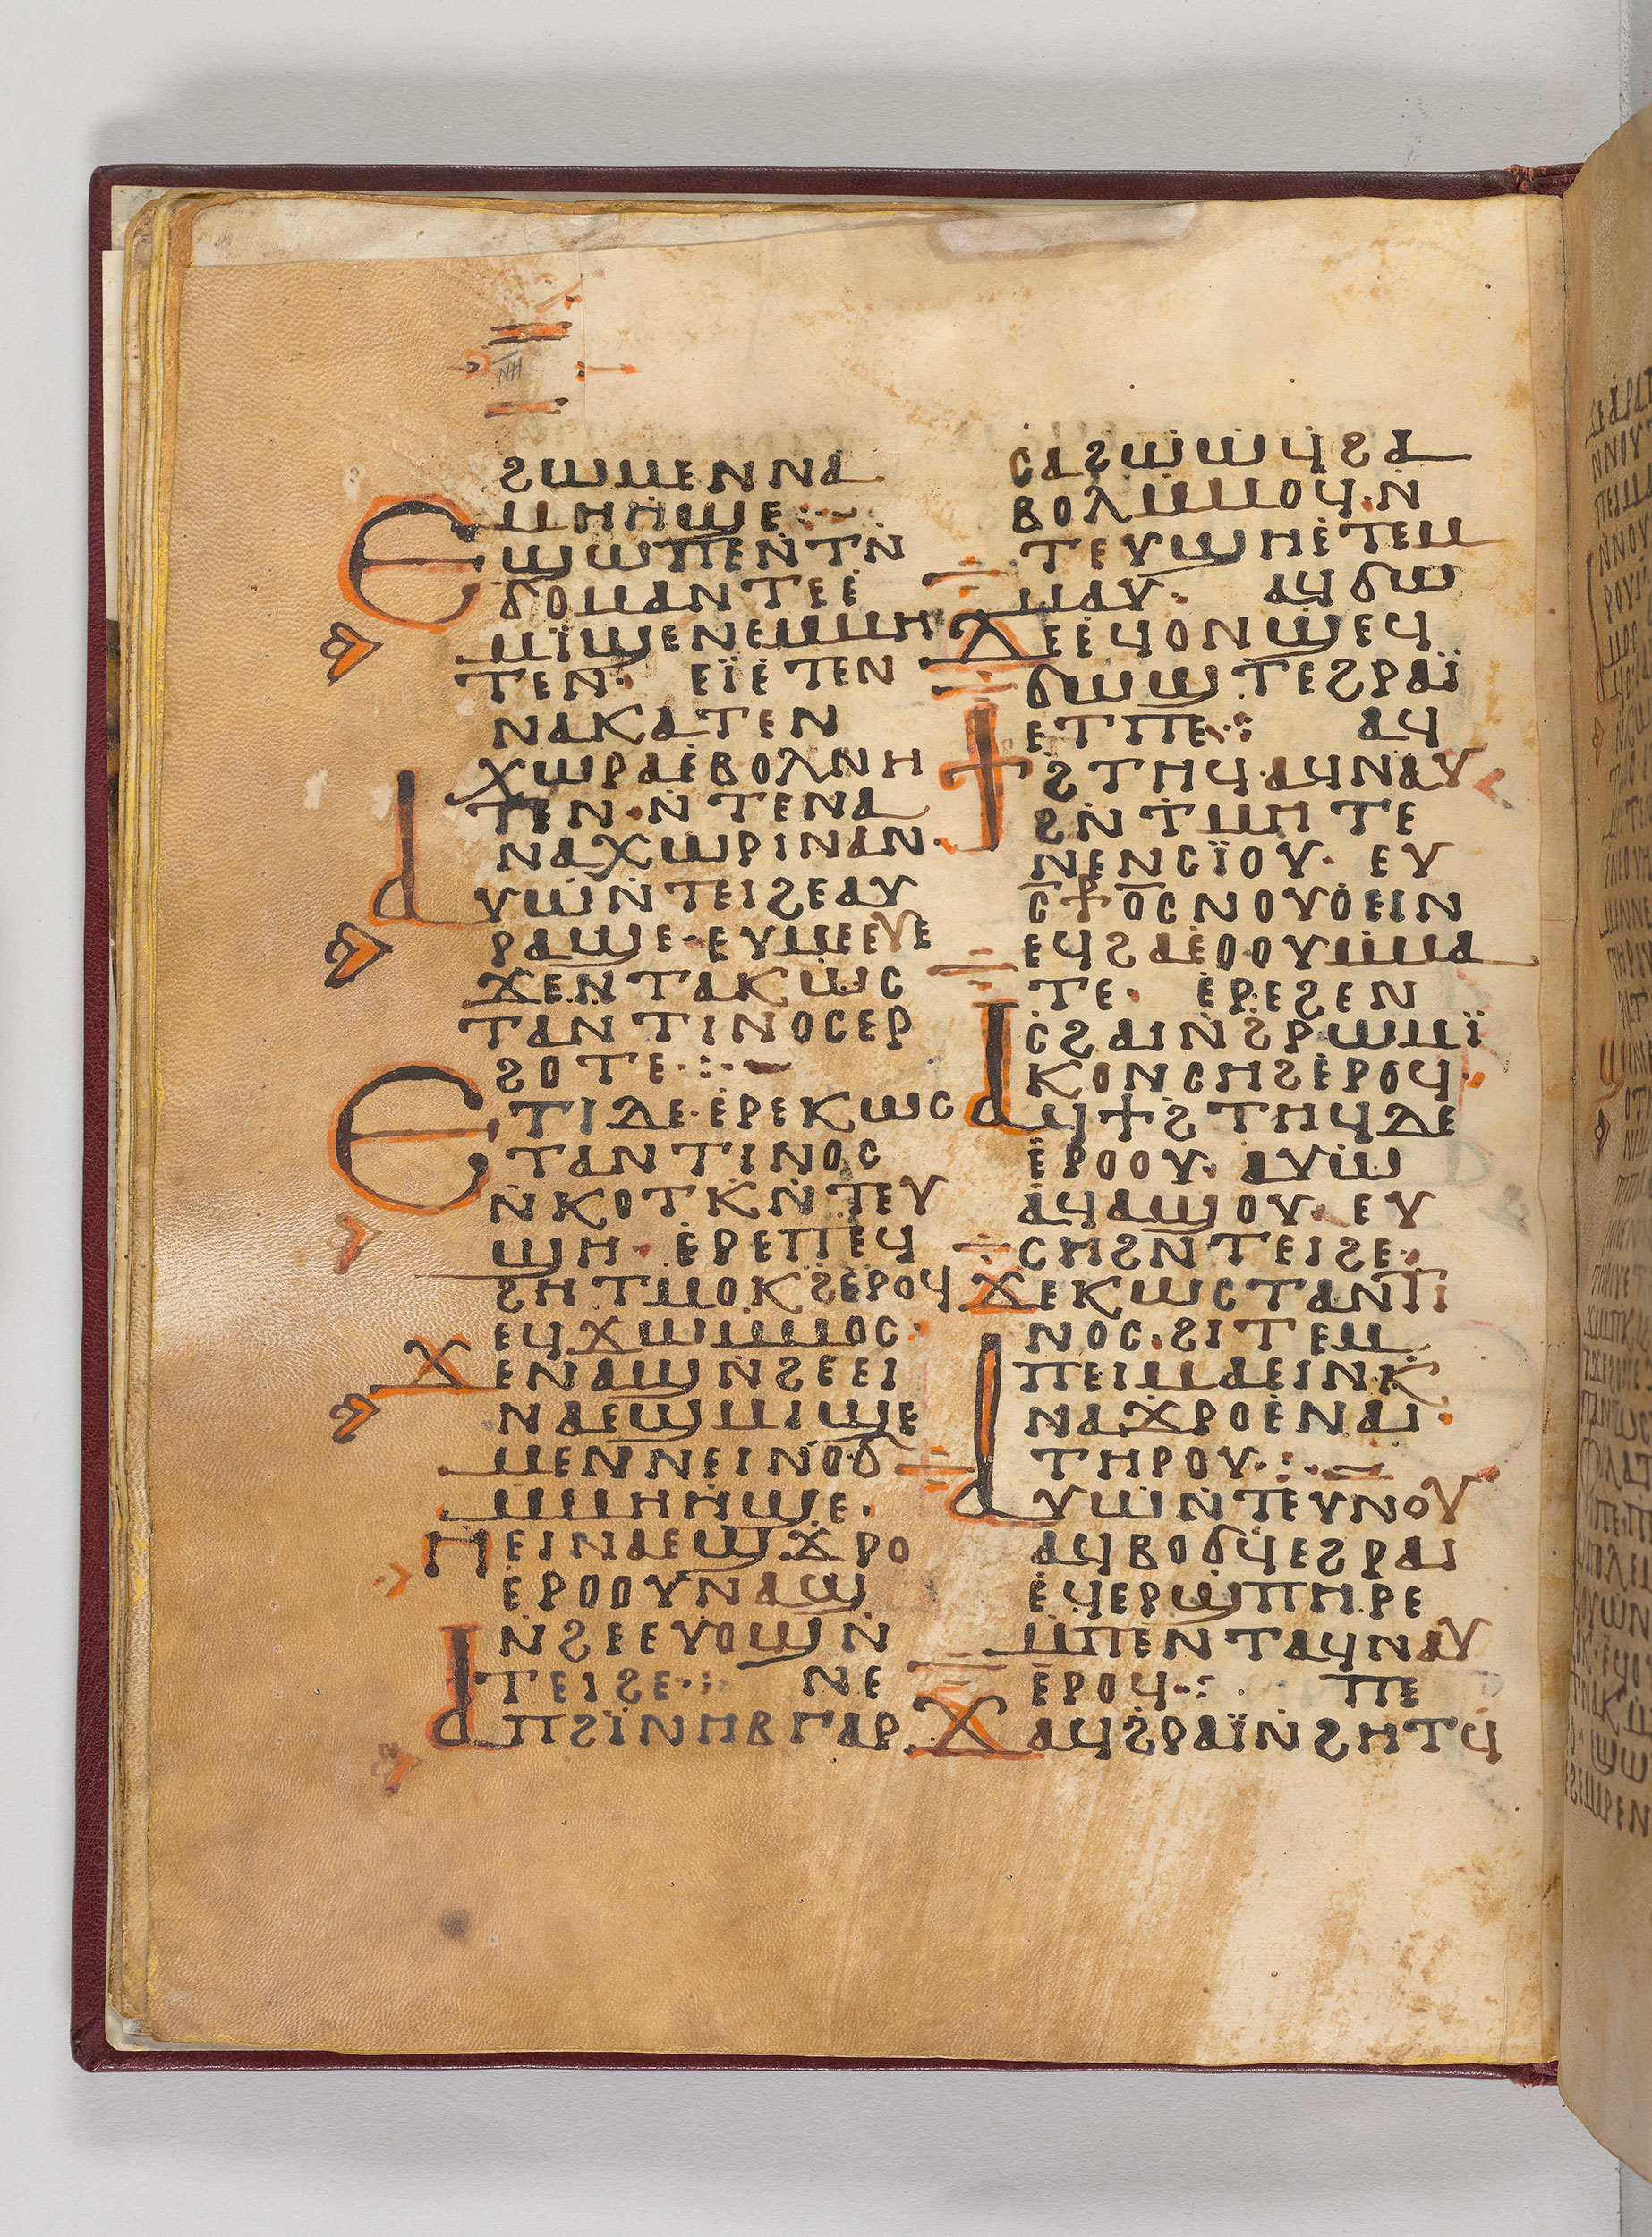 ⲛⲏ
ϩⲱⲙⲉⲛⲛⲁ
ⲙⲏⲏϣⲉ:·-
Ⲉϣⲱⲡⲉⲛⲧⲛ
ϭⲟⲙⲁⲛⲧⲉⲉ
ⲙⲓϣⲉⲛⲉⲙⲙⲏ
ⲧⲉⲛ· ⲉⲓ̈ⲉⲧⲉⲛ
ⲛⲁⲕⲁⲧⲉⲛ
ⲭⲱⲣⲁⲉⲃⲟⲗⲛⲏ
ⲧⲉⲛ·ⲛ̇ⲧⲉⲛⲁ
ⲛⲁⲭⲱⲣⲓⲛⲁⲛ·
Ⲁⲩⲱⲛ̇ⲧⲉⲓϩⲉⲁⲩ
ⲣⲁϣⲉ·ⲉⲩⲙⲉⲉⲩⲉ
ϫⲉⲛⲧⲁⲕⲱⲥ
ⲧⲁⲛⲧⲓⲛⲟⲥⲉⲣ
ϩⲟⲧⲉ·:·-
Ⲉⲧⲓⲇⲉ·ⲉⲣⲉⲕⲱⲥ
ⲧⲁⲛⲧⲓⲛⲟⲥ
ⲛ̇ⲕⲟⲧⲕⲛ̇ⲧⲉⲩ
ϣⲏ· ⲉ̇ⲣⲉⲡⲉϥ
ϩⲏⲧⲙⲟⲕϩⲉⲣⲟϥ
ⲉϥϫⲱⲙⲙⲟⲥ·
Ϫⲉⲛⲁϣⲛ̇ϩⲉⲉⲓ
ⲛⲁⲉϣⲙⲓϣⲉ
ⲙⲉⲛⲛⲉⲓⲛⲟϭ
ⲙⲙⲏⲏϣⲉ·
Ⲏⲉⲓⲛⲁⲉϣϫⲣⲟ
ⲉ̇ⲣⲟⲟⲩⲛⲁϣ
ⲛ̇ϩⲉⲉⲩⲟϣⲛ̇
ⲧⲉⲓϩⲉ·: ⲛⲉ
Ⲁⲡϩⲓ̈ⲛⲏⲃⲅⲁⲣ
ⲥⲁϩⲱⲱϥϩⲁ
ⲃⲟⲗⲙⲙⲟϥ·ⲛ̇
ⲧⲉⲩϣⲏⲉ̇ⲧⲉⲙ
ⲙⲁⲩ· ⲁϥϭⲱ
Ⲇⲉⲉ̇ϥⲟⲛϣⲉϥ
ϭⲱϣⲧⲉϩⲣⲁⲓ̈
ⲉ̇ⲧⲡⲉ·: ⲁϥ
Ϯϩⲧⲏϥ·ⲁϥⲛⲁⲩ
ϩⲛ̇ⲧⲙⲏⲧⲉ
ⲛⲉⲛⲥⲓ̈ⲟⲩ· ⲉⲩ
ⲥ̅ⳁⲟ̅ⲥⲛⲟⲩⲟ̇ⲉⲓⲛ
ⲉϥϩⲁⲉ̇ⲟⲟⲩⲙⲙⲁ
ⲧⲉ· ⲉ̇ⲣⲉϩⲉⲛ
ⲥϩⲁⲓⲛ̇ϩⲣⲱⲙⲓ̈
ⲕⲟⲛⲥⲏϩⲉ̇ⲣⲟϥ·
Ⲁϥϯϩⲧⲏϥⲇⲉ
ⲉ̇ⲣⲟⲟⲩ· ⲁⲩⲱ
ⲁϥⲁϣⲟⲩ· ⲉⲩ
ⲥⲏϩⲛ̇ⲧⲉⲓϩⲉ·
Ϫⲉⲕⲱⲥⲧⲁⲛⲧⲓ
ⲛⲟⲥ·ϩⲓⲧⲉⲙ
ⲡⲉⲓⲙⲁⲉⲓⲛⲕ
ⲛⲁϫⲣⲟⲉ̇ⲛⲁⲓ·
ⲧⲏⲣⲟⲩ·:·-
Ⲁⲩⲱⲛ̇ⲧⲉⲩⲛⲟⲩ
ⲁϥⲃⲟϭϥⲉϩⲣⲁⲓ
ⲉ̇ϥⲉⲣϣⲡⲏⲣⲉ
ⲙ̇ⲡⲉⲛⲧⲁϥⲛⲁⲩ
ⲉ̇ⲣⲟϥ·: ⲡⲉ
Ϫⲁϥϩⲣⲁⲓ̈ⲛ̇ϩⲏⲧϥ